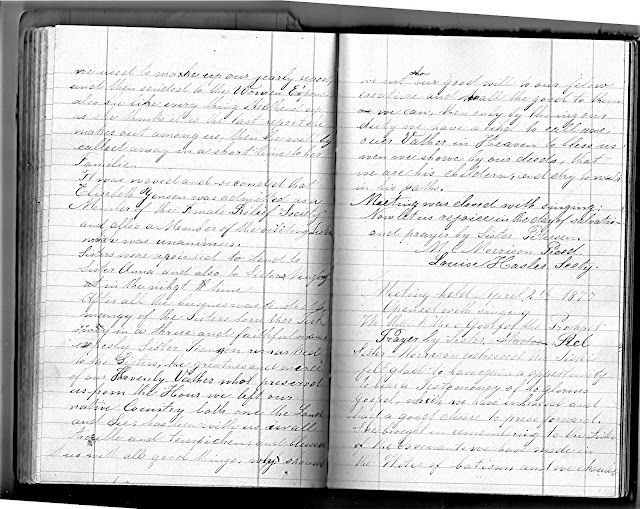 we used to make up our yearly report
and then sended to the Women Exponent
also she like every thing
as she thinks it is the last report she
makes out among us, then she will be
called away in a short time to her
Familie.
It was moved and seconded that
Elizabeth Jensen was admitted as a
Member of the Female Relief Society
and also a Member of the
more was unanimous.
Sisters were apointed to tend to
Sister Anna and also to Sister
at in the night time
After all the business was tended to,
meney of the Sisters born ther Test
imony in a true and faithful maner
espesly Sister remarked
to the Sisters, the greatness and mercies
of our Hevenly Father what preserved
us from the Hour we left our
native Country both one the Land
and Sea, has been with us in all
trouble and temptichen, and blessed
us with all good things, why should
we not show our good will to our felow
creature and do all the good to them
as we can, then ondy by thoing our
duty we have a right to call one
ouer Father in Heaven to bless us
wen we showe by our deeds, that
we are his childern, and dry to walk
in his paths.
Meeting was closed with singing:
Now let us rejoice in the day of salvation
and prayer by Sister Petersen
M. C. Morrison Pred
Louise Hasler Secty.
Meeting held April 2 1877
Opened with singing
We thank thee O God for the Prophet
Prayer by Sister
Sister Morrison adressed the Sisters
felt glad to have again a oppertunity
to bear a Testomoney of the glorious
Gospel which we have imbraced and
had a good desire to press forward.
She brought in remembring to the Sisters
of the covenants we have made in
the Wates of batism, and we should